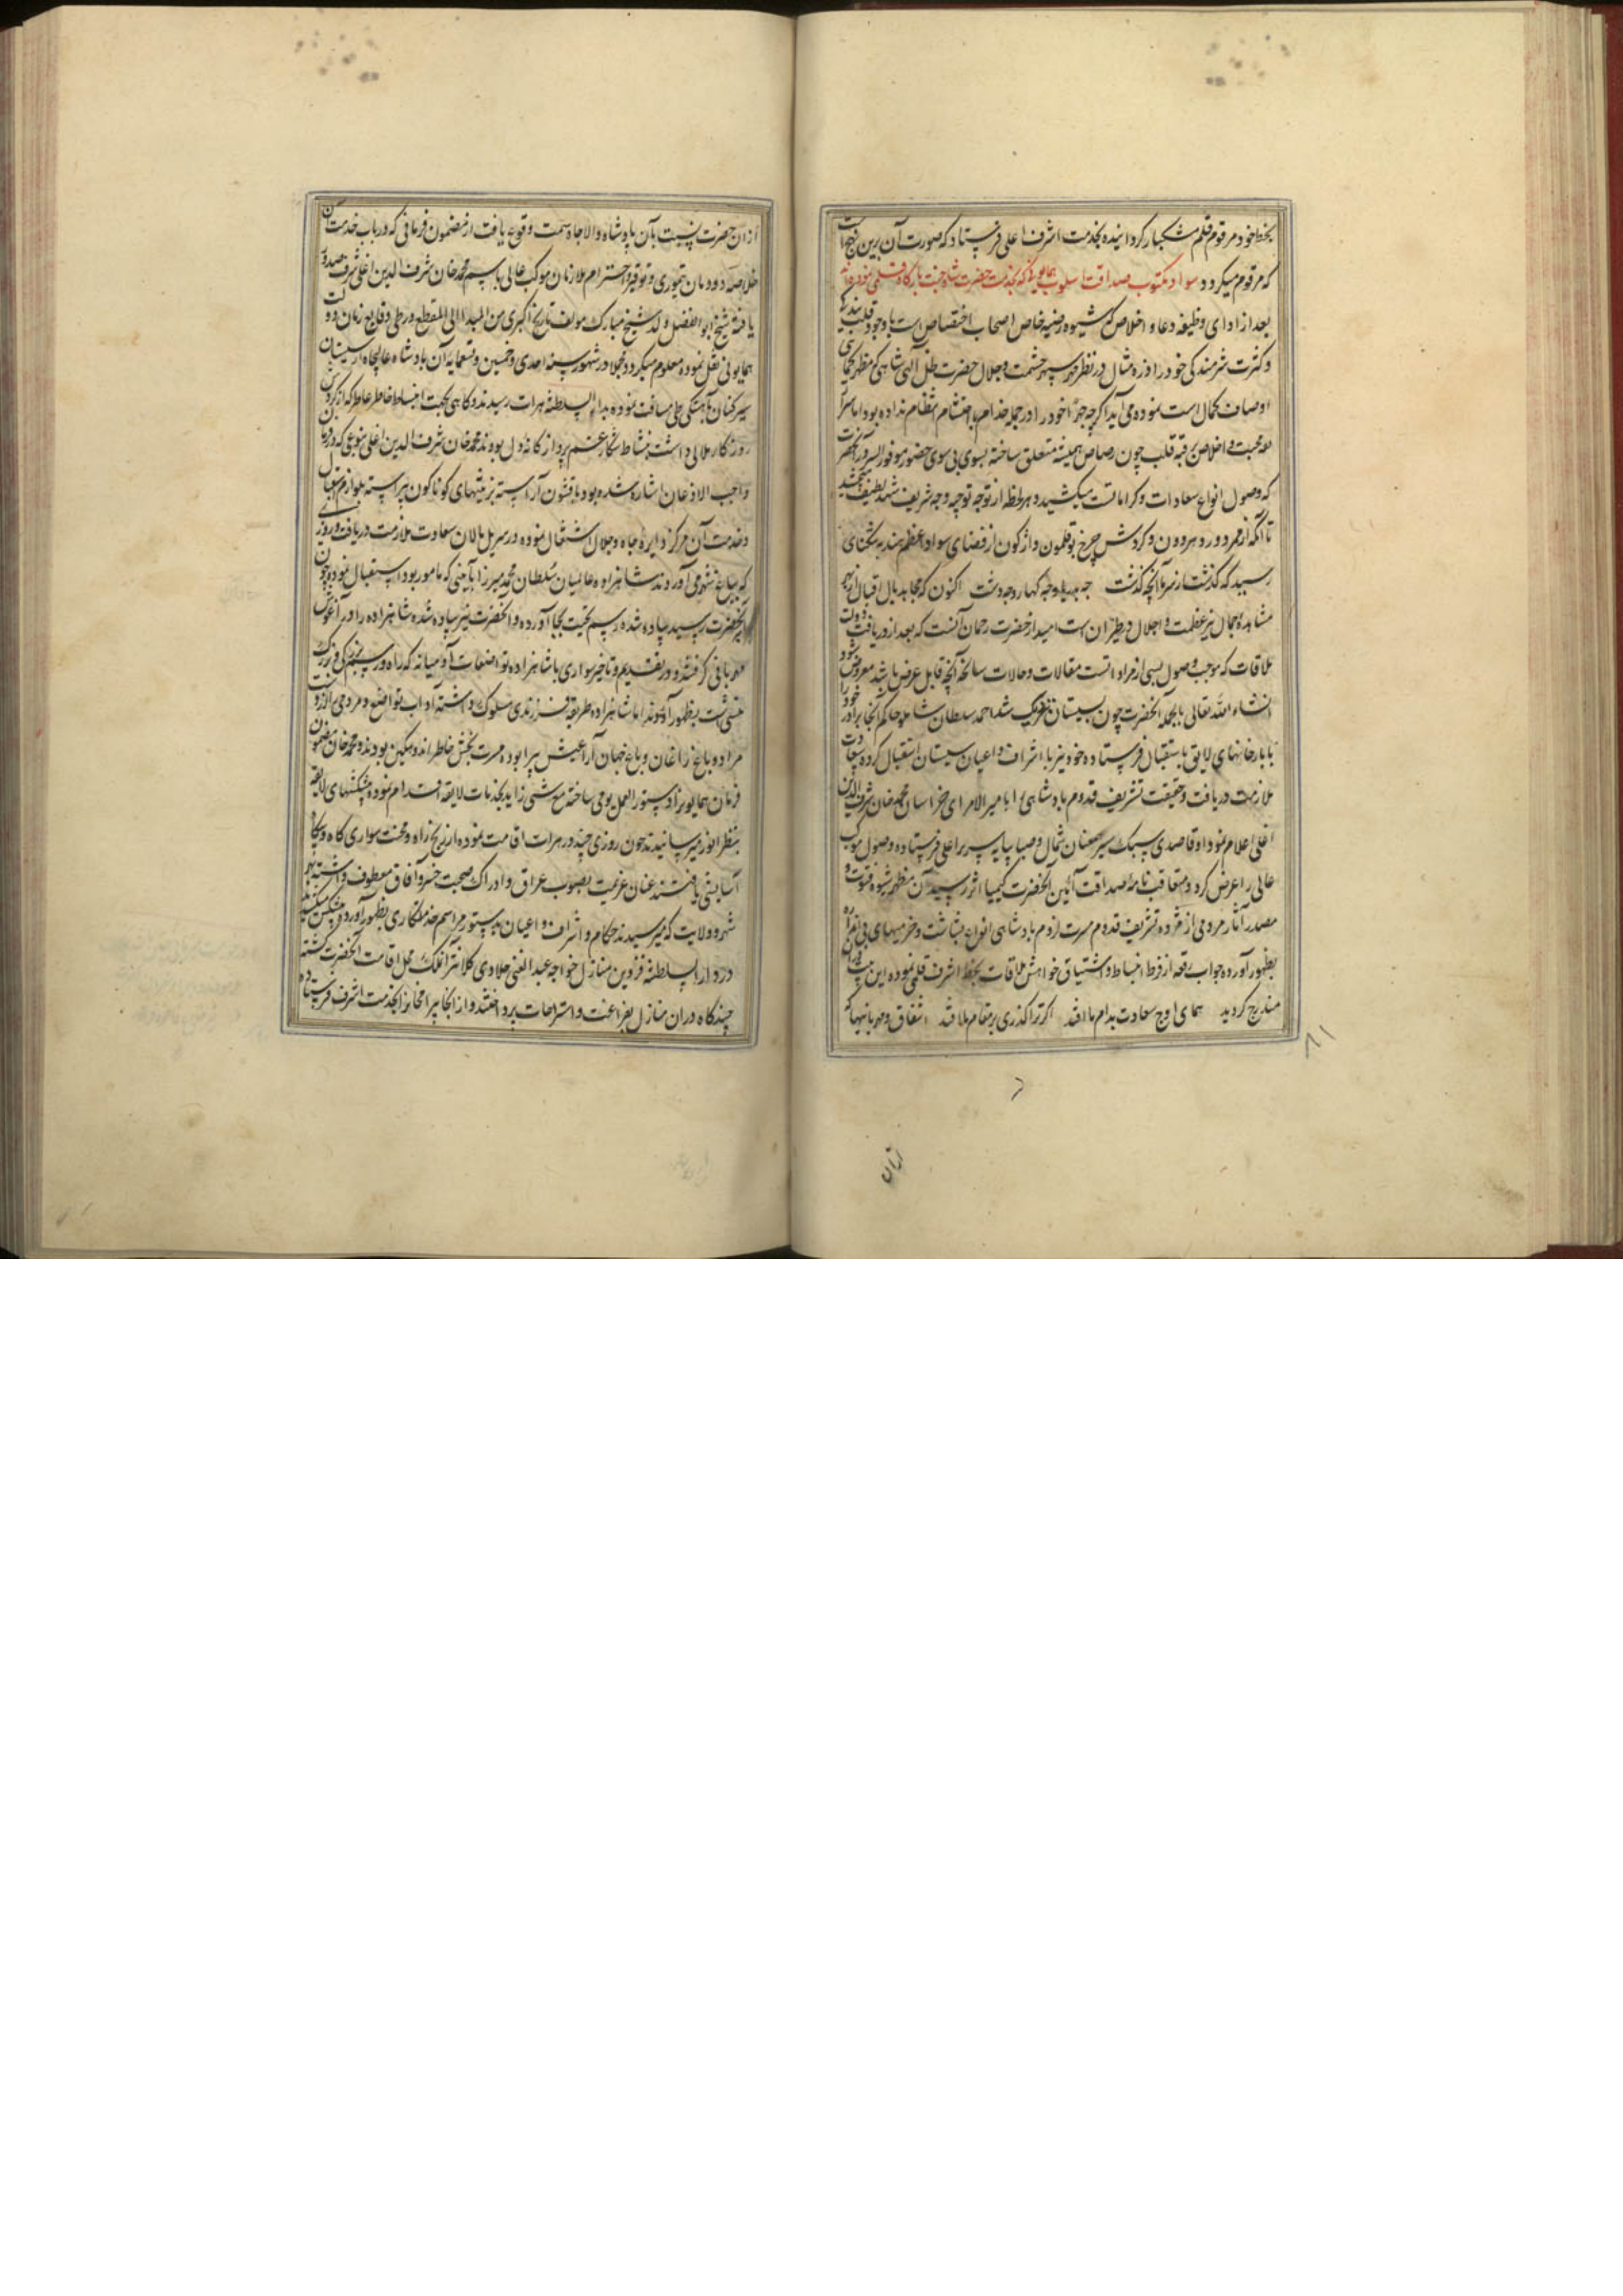 بخط خود مرقوم قلم مشکبار گردانیده بخدمت اشرف اعلی فرستاد که صورت آن برین نهج است
که مرقوم میگردد سواد مکتوب صداقت اسلوب همایون که بخدمت حضرت شاه جنت بارگاه قلمی نموده‌اند
بعد از ادای وظیفه دعا و اخلاص که شیوه رضیه خاص اصحاب اختصاص است با وجود قلت بندگی
و کثرت شرمندگی خود را ذره مثال در نظر مهر سپهر حشمت و جلال حضرت ظل الهی شاهی که مظهر
اوصاف کمال است نموده می آید اگرچه خود را در جمله خدام با احتشام انتظام نداده بود اما
محبت و اخلاص رقبه قلب چون رصاص همیشه متعلق ساخته بسوی حضور موفور السرور آنحضرت
که وصول انواع سعادات و کراماتست میکشید و هر لحظه از توجه وجه شریف
تا آنکه از مرور دور دهر دون و گردش چرخ بوقلمون واژگون از فضای سواد اعظم هند به تنگنای
رسید که گذشت از سر ما آنچه گذشت چه بدریا و چه بکهسار و چه دشت اکنون که
مشاهده جمال نیر عظمت و اجلال در طیران است امید از حضرت رحمان آنست که بعد از دریافت دولت
ملاقات که موجب وصول بسی از مرادات است مقالات و حالات سانحه آنچه قابل عرض باشد معروض شود
انشاء الله تعالی بالجمله آنحضرت چون بسیستان نزدیک شد احمد سلطان شاملو حاکم آنجا برادر خود را
با بارخانهای لایق باستقبال فرستاده خود نیز با اشراف و اعیان سیستان استقبال کرده سعادت
ملازمت دریافت و حقیقت تشریف قدوم پادشاهی را با میر الامرای خراسان محمد خان شرف الدین
اغلی اعلام نمود او قاصدی سبک سیر بپایه سریر اعلی فرستاده وصول موکب
عالی را عرض کرد و متعاقب نامه صداقت آئین آنحضرت کیمیا اثر رسید آن مظهر شیوه فتوت و
مصدر آثار مردمی از مژده تشریف قدوم مسرت لزوم پادشاهی انواع بشاشت و خرمیهای بی اندازه
بظهور آورده جواب رقعه از فرط انبساط و اشتیاق خواهش ملاقات بخط اشرف قلمی نموده این بیت در آن
مندرج گردید همای اوج سعادت بدام ما افتد اگر ترا گذری بر مقام ما افتد اشفاق و مهربانیها که
۸۱
ازان
ازان حضرت نسبت بآن پادشاه والا جاه سمت وقوع یافت از مضمون فرمانی که در باب خدمت آن
خلاصه دودمان تیموری و توقیر و احترام ملازمان موکب عالی باسم محمد خان شرف الدین اغلی شرف صدور
یافته شیخ ابو الفضل ولد شیخ مبارک مولف تاریخ اکبری من المبدا الی المقطع در طی وقایع زمان دولت
همایونی نقل نموده معلوم میگردد مجملا در شهور سنه احدی و خمسین و تسعمایه آن پادشاه عالیجاه از سیستان
سیر کنان بآهستگی طی مسافت نموده بدار السلطنه هرات رسیدند و گاهی بجهت انبساط خاطر عاطر که از گردش
روزگار ملالی داشت بنشاط شکار غم پرداز کاشانه دل بودند محمد خان شرف الدین اغلی بنوعی که در فرمان
واجب الاذعان اشاره شده بود با قشون آراسته بزینتهای گوناگون پیراسته بلوازم استقبال
و خدمت آن مرکز دایره جاه و جلال اشتغال نموده در سر پل مالان سعادت ملازمت دریافت و روزی
که بباغ شهر می آوردند شاهزاده عالمیان سلطان محمد میرزا بآئینی که مامور بود استقبال نموده چون
آنحضرت رسید پیاده شده رسم تحیت بجا آورده و آنحضرت نیز پیاده شده شاهزاده را در آغوش
مهربانی گرفتند و در تقدیم و تاخیر سواری با شاهزاده تواضعات آدمیانه که راه و رسم بزرگی و بزرگ
منشی است بظهور آوردند اما شاهزاده طریقه فرزندی مسلوک داشته آداب تواضع و مردمی
مراد و باغ زاغان و باغ جهان آرا عیش پیرا بوده مسرت بخش خاطر اندوهگین بودند و محمد خان مضمون
فرمان همایون را دستور العمل یومی ساخته مع شئی زاید بخدمات لایقه اقدام نموده پیشکشهای لایقه
بنظر انور میرسانید چون روزی چند در هرات اقامت نموده از رنج راه و محنت سواری گاه و بیگاه
آسایشی یافتند عنان عزیمت بصوب عراق و ادراک صحبت خسرو آفاق معطوف داشته بهر
شهر و ولایت که میرسیدند حکام و اشراف و اعیان بدستور مراسم خدمتکاری بظهور آورده پیشکش میکشیدند
در دار السلطنه قزوین منازل خواجه عبد الغنی جلادی کلانتر آنملک محل اقامت آنحضرت گشته
چندگاه در آن منازل بفراغت و استراحت پرداختند و از آنجا بیرام خان را بخدمت اشرف فرستاده